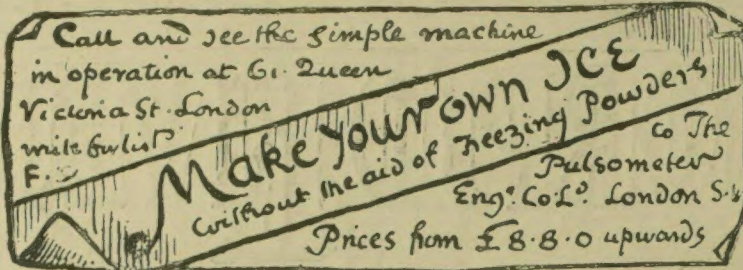 Call and see the simple machine
in operation at 61. Queen
Victoria St. London
write for list
F.
Make your own ICE
without the aid of Freezing Powders
to The
Pulsometer
Engr. Co. Ld. London S.
Prices from £8.8.0 upwards